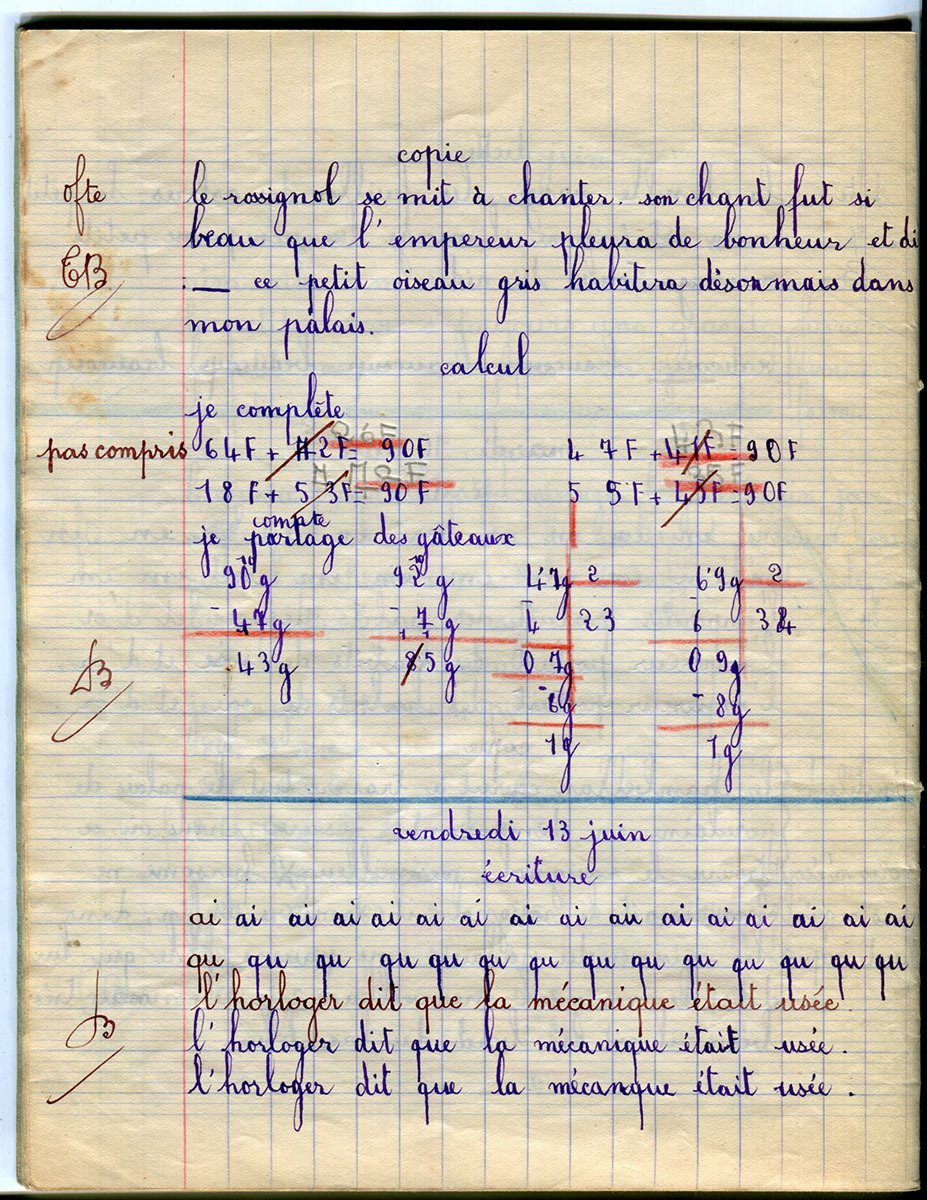 copie
ofte le rossignol se mit à chanter. son chant fut si
beau que l'empereur pleura de bonheur et di
TB : — ce petit oiseau gris habitera désormais dans
mon palais.
calcul
je complète
pas compris 64F + 2F = 90F 4 7F + 41F = 90F
18F + 5 3F = 90F 5 5F + 45F = 90F
compte
je partage des gâteaux
90g 92g 47g 2 69g 2
- 47g - 7g - 4 23 - 6 34
43g 85g 0 7g 0 9g
B - 6g - 8g
1g 1g
vendredi 13 juin
écriture
ai ai ai ai ai ai ai ai ai ai ai ai ai ai ai ai
qu qu qu qu qu qu qu qu qu qu qu qu qu qu
l'horloger dit que la mécanique était usée.
B l'horloger dit que la mécanique était usée.
l'horloger dit que la mécanque était usée.